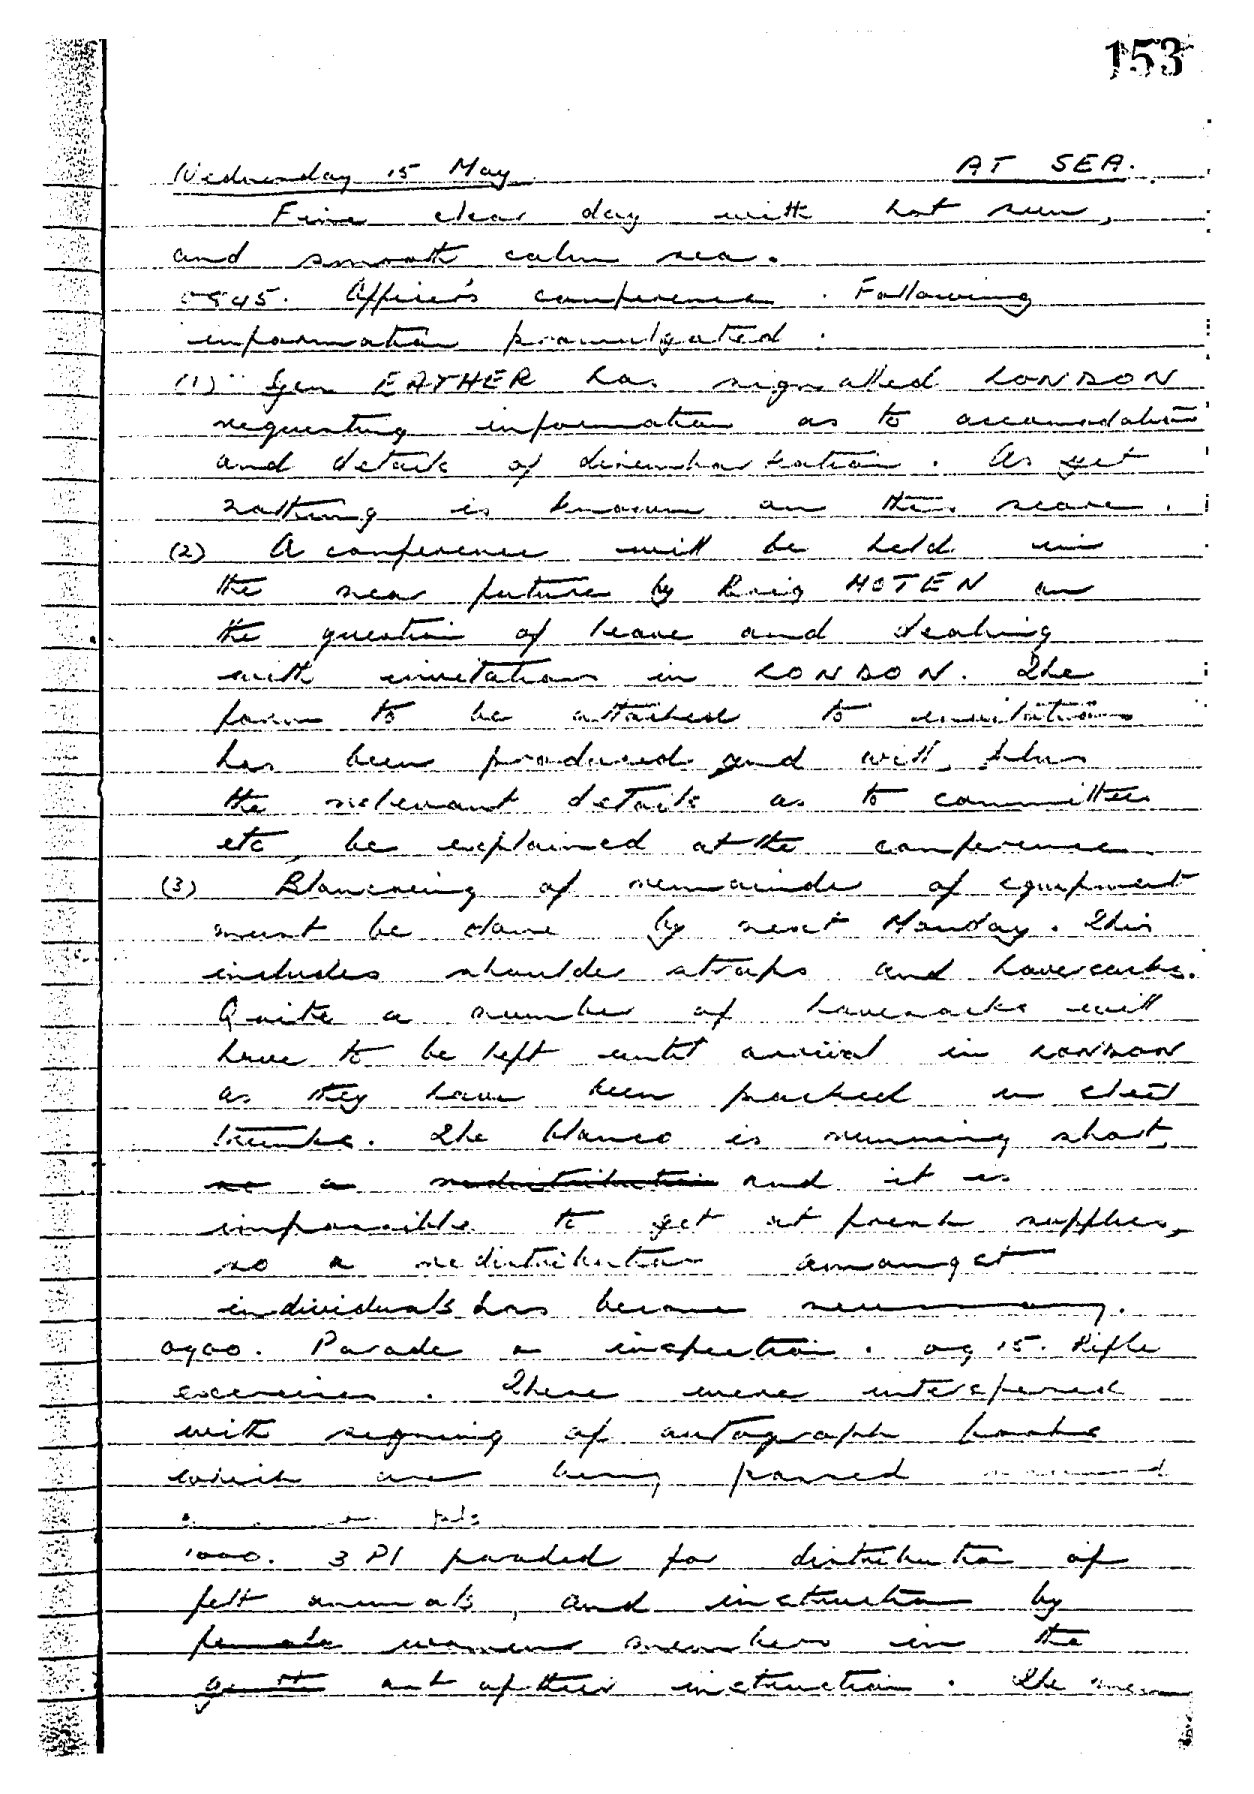 153
Wednesday 15 May AT SEA.
Fine clear day with hot sun,
and smooth calm sea.
0845. Officer's conference. Following
information promulgated:
(1) Gen EATHER has signalled LONDON
requesting information as to accomodation
and details of disembarkation. As yet
nothing is known on this score.
(2) A conference will be held in
the near future by Brig HOTEN on
the question of leave and dealing
with invitations in LONDON. The
form to be attached to invitations
has been produced and will, plus
the relevant details as to committees
etc, be explained at the conference.
(3) Blancoing of remainder of equipment
must be done by next Monday. This
includes shoulder straps and haversacks.
Quite a number of haversacks will
have to be left until arrival in LONDON
as they have been packed in steel
trunks. The blanco is running short
so a redistribution and it is
impossible to get at fresh supplies,
so a redistribution amongst
individuals has become necessary.
0900. Parade & inspection. 0915. Rifle
exercises. These were interspersed
with signing of autograph books
which are being passed around
1000. 3 Pl paraded for distribution of
felt animals, and instruction by
female womens members in the
art of their instruction. The men